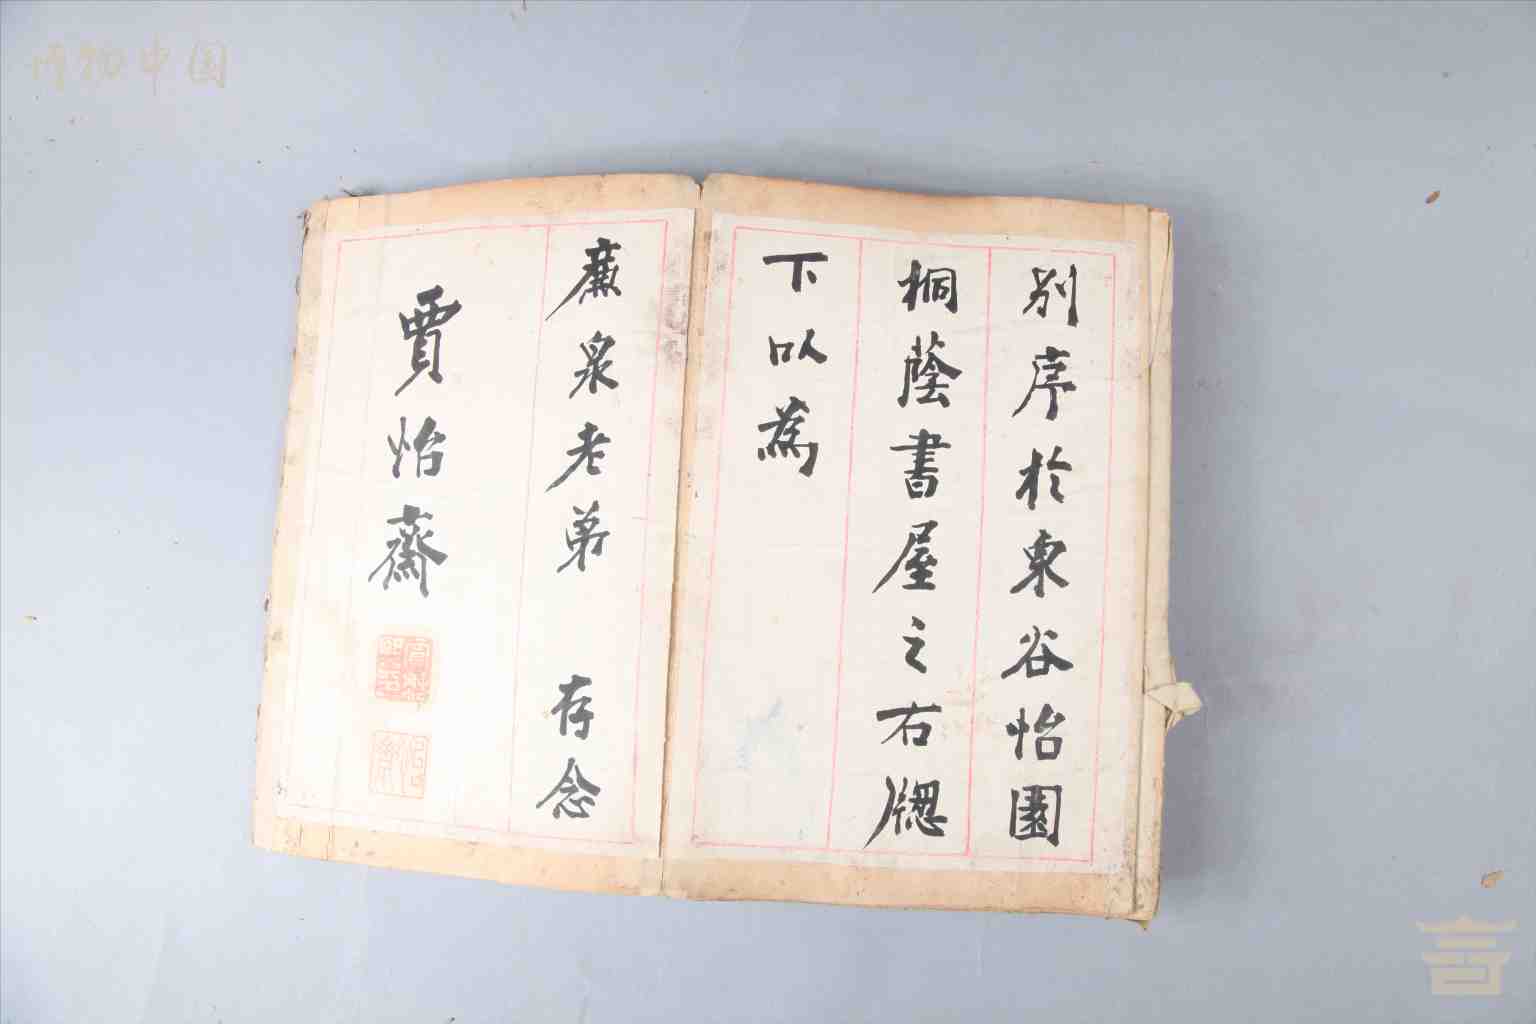 別序於東谷怡園
桐蔭書屋之右牕
下以為
廉泉老弟 存念
賈怡齋
博物中国